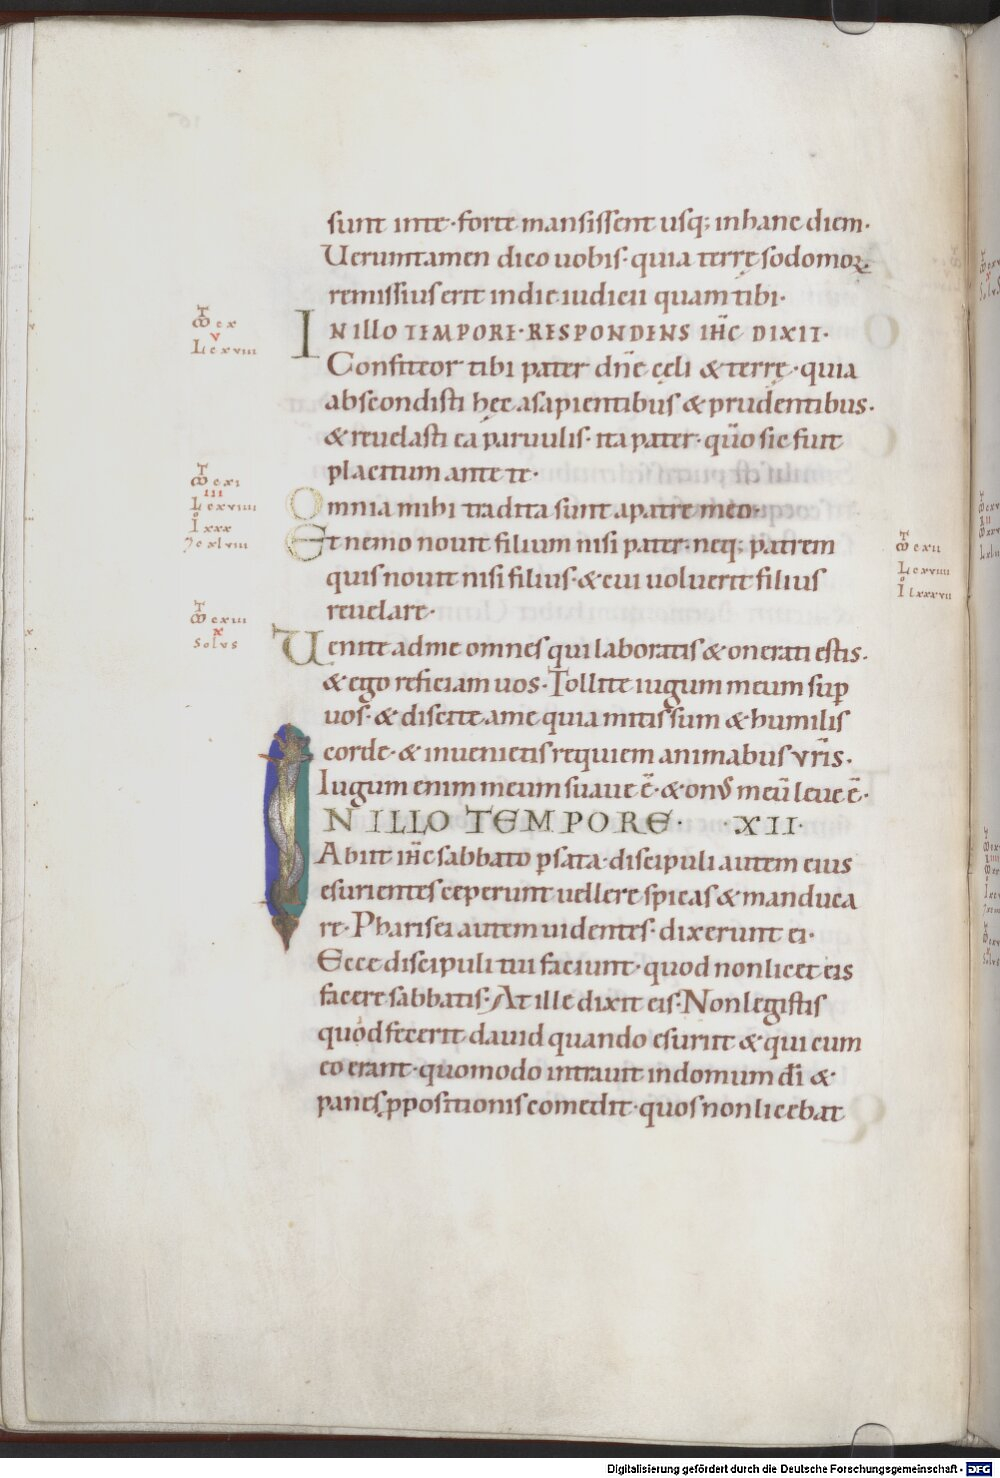 sunt inte·forte mansissent usq; inhanc diem·
Ueruntamen dico uobis· quia terrę sodomoꝝ
remissius erit indie iudicii quam tibi·
INILLO TEMPORE·RESPONDENS IHC̄ DIXIT·
Confiteor tibi pater dn̄e cęli & terrę·quia
abscondisti hęc asapientibus & prudentibus·
& reuelasti ea paruulis· ita pater· qm̄o sic fuit
placitum ante te·
Omnia mihi tradita sunt apatre meo·
Et nemo nouit filium nisi pater·neq; patrem
quis nouit nisi filius·& cui uoluerit filius
reuelare·
Uenite adme omnes qui laboratis & onerati estis·
& ego reficiam uos·Tollite iugum meum suꝑ
uos·& discite ame quia mitis sum & humilis
corde·& inuenietis requiem animabus vr̄is·
Iugum enim meum suaue ē·& on' meū leue ē·
INILLO TEMPORE· ·XII·
Abiit ihc̄ sabbato ꝑ sata·discipuli autem eius
esurientes ceperunt uellere spicas & manduca
re·Pharisei autem uidentes·dixerunt ei·
Ecce discipuli tui faciunt·quod non licet eis
facere sabbatis·At ille dixit eis·Non legistis
quod fecerit dauid quando esuriit & qui cum
eo erant·quomodo intrauit indomum dī &
panes ꝓpositionis comedit·quos non licebat
cx
v
L cxviii
cxi
iii
L cxviiii
I xxx
cxlviii
cxiii
x
solvs
cxii
L cxviiii
I lxxxvii
Digitalisierung gefördert durch die Deutsche Forschungsgemeinschaft - DFG